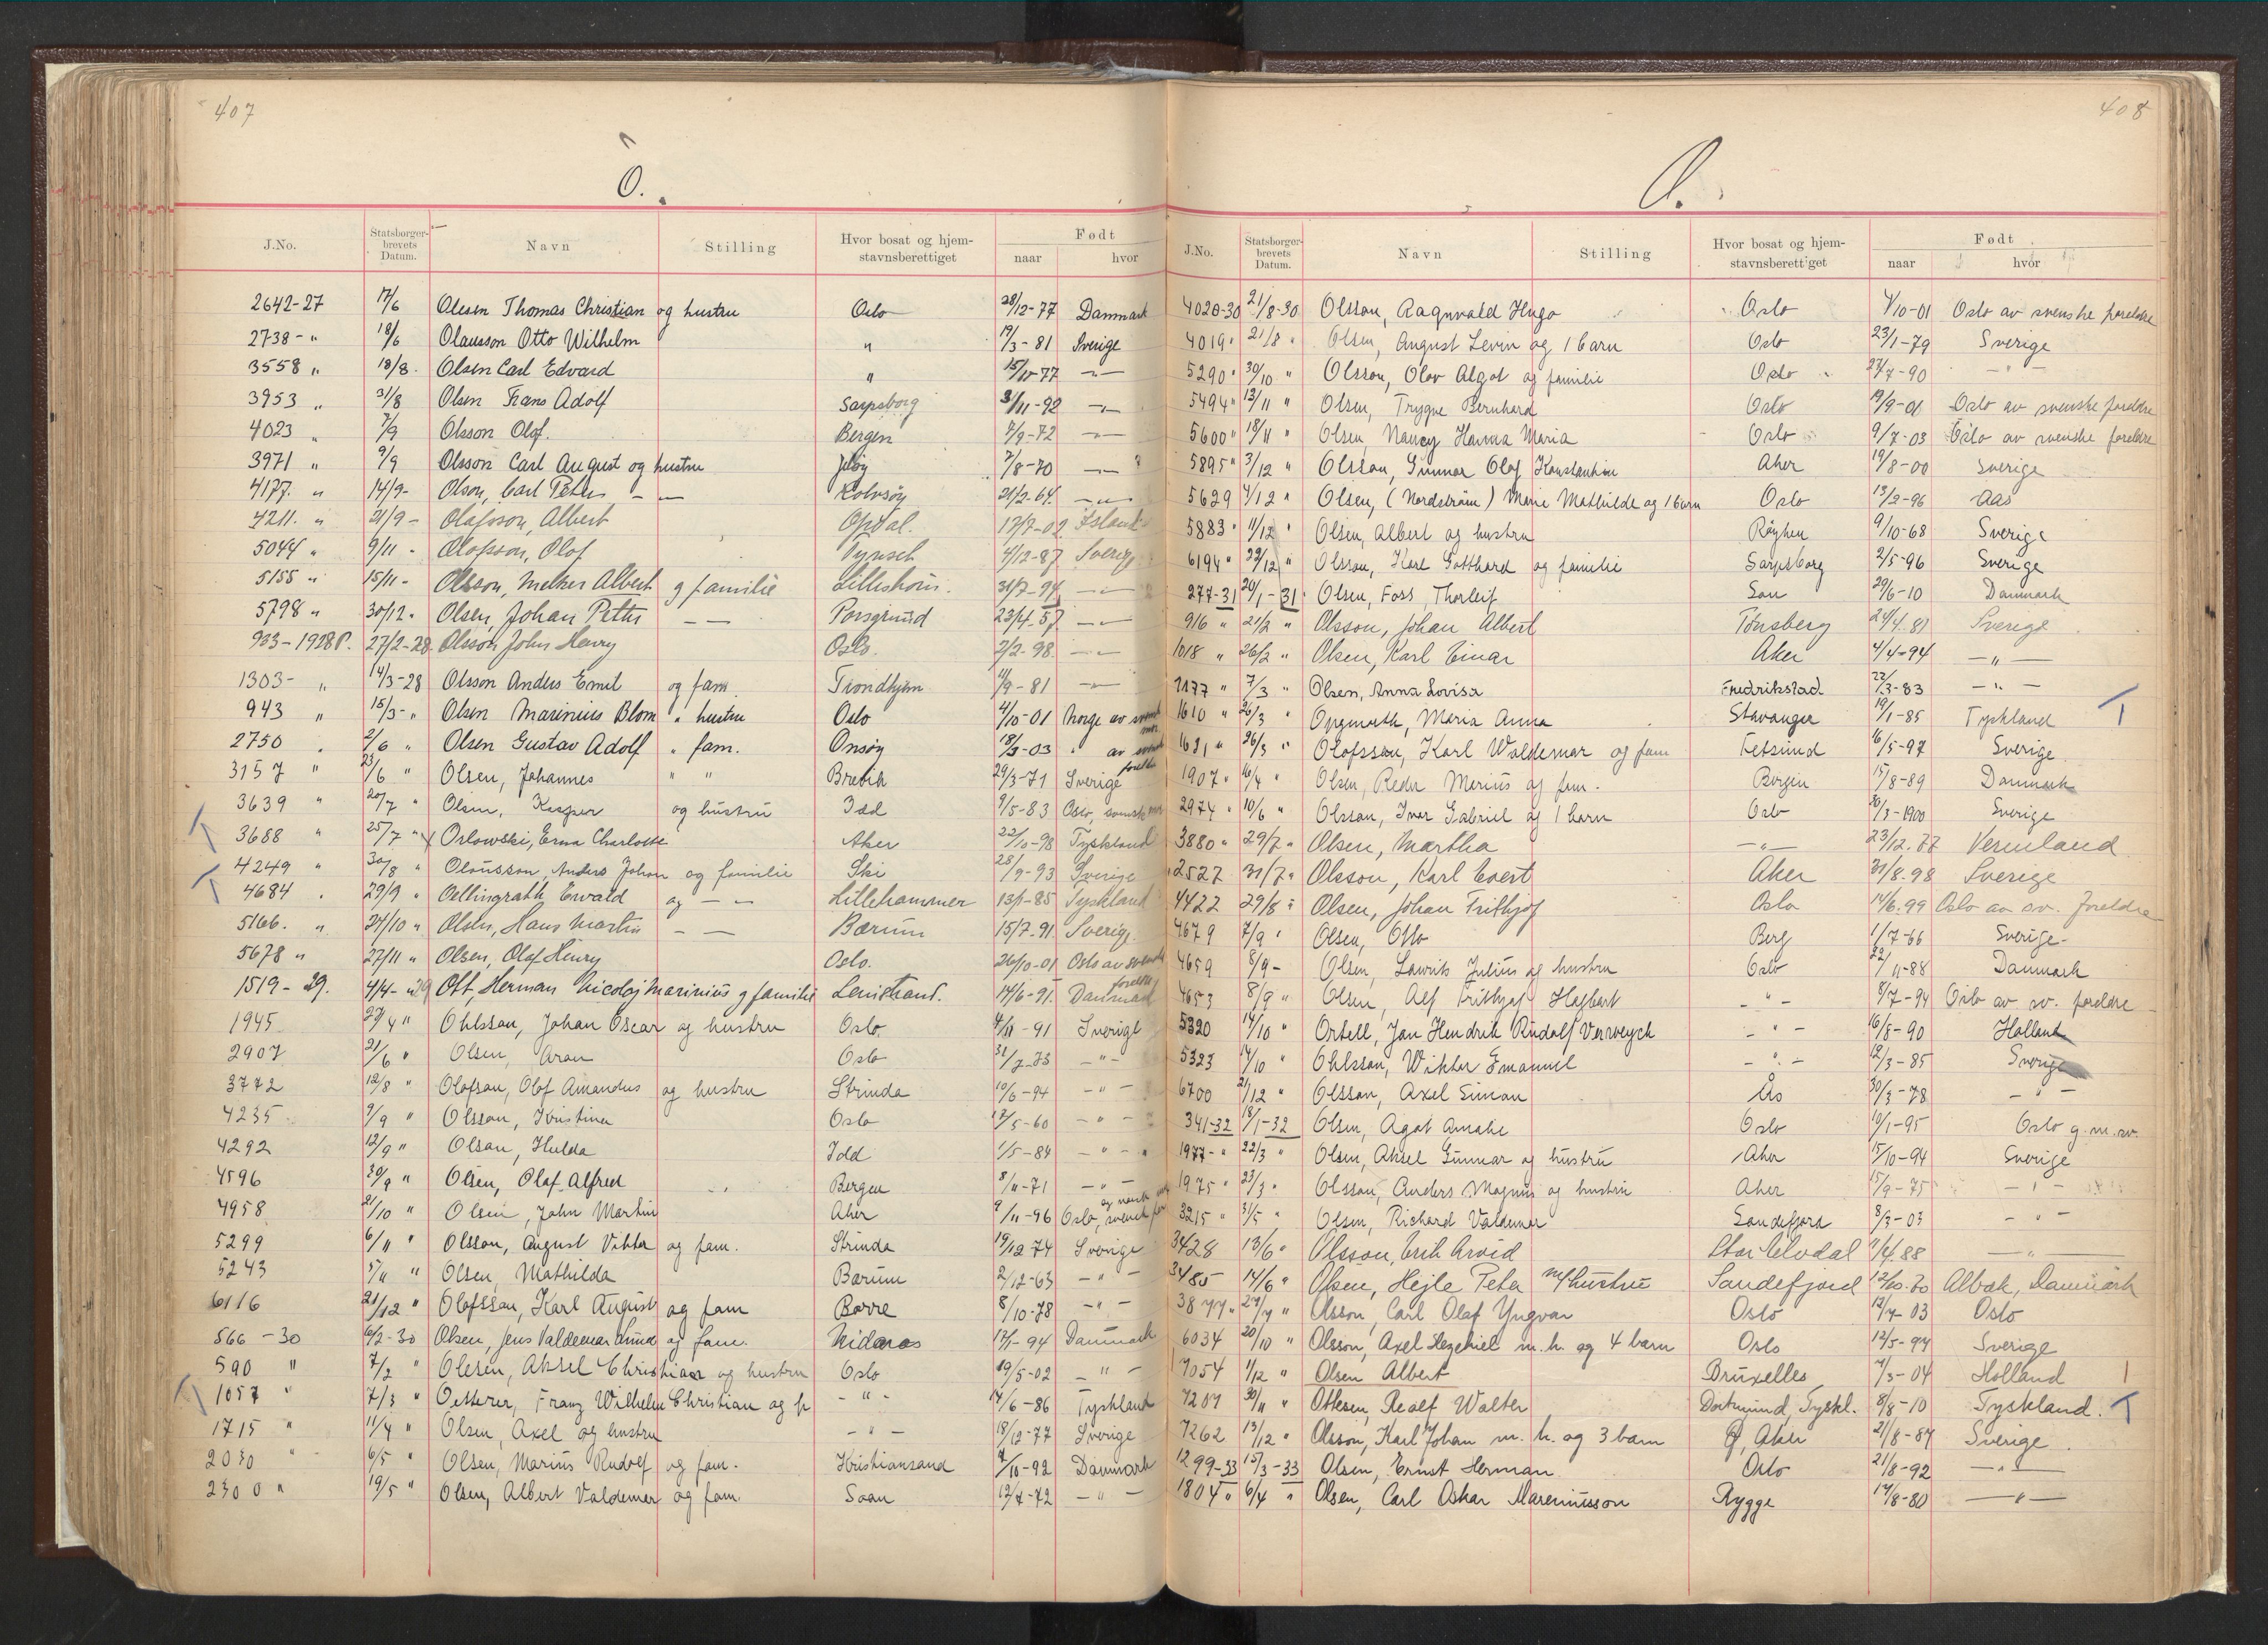 407
O.
J.No. Statsborger-brevets Datum. Navn Stilling Hvor bosat og hjem-stavnsberettiget Født naar hvor
2642-27 17/6 Olesen Thomas Christian og hustru Oslo 28/12-77 Danmark
2738- " 18/6 Olausson Otto Wilhelm " 19/3-81 Sverige
3558 " 18/8 Olsen Carl Edvard " 15/11-77 -"-
3953 " 31/8 Olsen Frans Adolf Sarpsborg 3/11-92 -"-
4023 " 7/9 Olsson Olof. Bergen 4/9-72 -"-
3971 " 9/9 Olsson Carl August og hustru Jeløy 7/8-70 -"-
4177. " 14/9- Olson, Carl Peter - - Rolvsøy 21/2-64. -"-
4211. " 21/9- Olafsson, Albert Opdal. 17/7-02 Island
5044 " 9/11- Olofsson, Olof Tynset 4/12-87 Sverige
5155 " 15/11- Olsson, Melker Albert g familie 31/7-94 -"-
5798 " 30/12- Olsen, Johan Petter - - Porsgrund 23/4-57 -"-
933-1928 P. 27/2-28. Olsson John Henry Oslo. 2/2-98. -"-
1303- " 14/3-28 Olsson Anders Emil og fam. Trondhjem 11/9-81 -"-
943 " 15/3- " Olsen Marinius Blom " hustru Oslo 4/10-01 Norge av svensk mor
2750 " 2/6 " Olsen Gustav Adolf " fam. Onsøy 18/3-03 " av svensk foreldre
3157 " 23/6 " Olsen, Johannes " " Brevik 29/3-71 Sverige
3639 " 20/7 " Olsen, Kasper og hustru Idd 9/5-83 Oslo, svensk mor
T 3688 " 25/7 " Orlowski, Erna Charlotte Aker 22/10-98 Tyskland
4249 " 30/8 " Olausson, Anders Johan og familie Ski 28/9-93 Sverige
T 4684 " 29/9 " Oellingrath Ewald og - - Lillehammer 13/1-85 Tyskland
5166. " 24/10 " Olsen, Hans Martin - - Bærum 15/7-91. Sverige.
5678 " 27/11 " Olsen, Olaf Henry Oslo. 26/10-01 Oslo av svenske foreldre
1519-29. 4/4-29 Ott, Herman Nicolaj Marinius g familie 14/6-91. Danmark
1945 27/4 " Ohlsson, Johan Oscar og hustru Oslo 4/11-91 Sverige
2907 21/6 " Olsen, Aron Oslo 31/7-73 -"-
3772 12/8 " Olofson, Olof Amandus og hustru Strinda 10/6-94 -"-
4235 9/9 " Olsson, Kristina Oslo 12/5-60 -"-
4292 12/9 " Olsson, Hulda Idd 1/5-84 -"-
4596 30/9 " Olsen, Olaf Alfred Bergen 8/11-71 -"-
4958 21/10 " Olsen, John Martin Aker 9/11-96 Oslo, svensk far og norsk mor
5299 6/11 " Olsson, August Viktor og fam. Strinda 19/12 74 Sverige
5243 5/11 " Olsen, Mathilda Bærum 2/12-63 -"-
6116 21/12 " Olofsson, Karl August og fam Borre 8/10-78 -"-
566-30 6/2-30 Olsen, Jens Valdemar Lund og fam. Nidaros 12/1-94 Danmark
590 " 7/2 " Olesen, Aksel Christian og hustru Oslo 19/5-02 " -
T 1057 " 7/3 " Oetterer, Franz Wilhelm Christian og fr -"- 14/6-86 Tyskland
1715 " 11/4 " Olsen, Axel og hustru -"- 18/12-77 Sverige
2030 " 6/5 " Olsen, Marius Rudolf og fam. Kristiansand 7/10-92 Danmark
2300 " 19/5 " Olsen, Albert Valdemar og fam. Soon 12/7-72 -"-
408
O.
J.No. Statsborger-brevets Datum. Navn Stilling Hvor bosat og hjem-stavnsberettiget Født naar hvor
4020-30 21/8-30 Olsson, Ragnvald Hugo Oslo 4/10-01 Oslo av svenske foreldre
4019 " 21/8 " Olsen, August Levin og 1 barn Oslo 23/1-79 Sverige
5290 " 30/10 " Olsson, Olov Algot og familie Oslo 27/7-90 -"-
5494 " 13/11 " Olsen, Trygve Bernhard Oslo 19/9-01 Oslo av svenske foreldre
5600 " 18/11 " Olsen Nancy Hanna Maria Oslo 9/7-03 Oslo av svenske foreldre
5895 " 3/12 " Olsson, Gunnar Olof Konstantin Aker 19/8-00 Sverige
5629 4/12 " Olsen, (Nordström) Marie Mathilde og 1 barn Oslo 13/2-96 Aas
5883 " 11/12 " Olsen, Albert og hustru Røyken 9/10-68 Sverige
6194 " 22/12 " Olsson, Karl Gotthard og familie Sarpsborg 2/5-96 Sverige
277-31 20/1-31 Olsen, Foss, Thorleif Son 29/6-10 Danmark
916 " 21/2 " Olsson, Johan Albert Tønsberg 24/4-81 Sverige
1018 " 26/2 " Olsen, Karl Einar Aker 4/4-94 -"-
1177 " 7/3 " Olsen, Anna Lovisa Fredrikstad 22/3-83 -"-
1610 " 26/3 " Maria Anna Stavanger 19/1-85 Tyskland T
1621 " 26/3 " Olofsson, Karl Waldemar og fam Fetsund 16/5-97 Sverige.
1907 " 16/4 " Olsen, Peder Marius og fam. Bergen 15/8-89 Danmark
2974 " 10/6 " Olsson, Ivar Gabriel og 1 barn Oslo 20/3-1900 Sverige
3880 " 29/7 " Olsen, Martha -"- 23/12.77 Vermland
2527 31/7 " Olsson, Karl Evert Aker 31/8.98 Sverige
4422 29/8 " Olsen, Johan Frithjof Oslo 14/6.99 Oslo av sv. foreldre
4679 7/9 " Olsen, Otto Berg 1/7-66 Sverige-
4659 8/9- Olsen, Laurits Julius og hustru Oslo 22/11-88 Danmark
4653 8/9 " Olsen, Alf Frithjof Hagbart -"- 8/7-94 Oslo av sv. foreldre
5320 14/10 " Ortell, Jan Hendrik Rudolf Verweyck -"- 16/8-90 Holland
5323 14/10 " Ohlsson, Wiktor Emanuel -"- 12/3-85 Sverige
6700 21/12 " Olsson, Axel Simon Ås 30/3-78 -"-
341-32 18/1-32 Olsen, Agot Amalie Oslo 10/1-95 Oslo g.m.sv.
1977- " 22/3 " Olsen, Aksel Gunnar og hustru Aker 15/10-94 Sverige
1975 " 23/3 " Olsson, Anders Magnus og hustru Aker 15/9-75 -"-
3215 " 31/5 " Olsen, Richard Valdemar Sandefjord 8/3-03 -"-
3428 13/6 " Olsson, Erik Arvid Stor Elvdal 9/4.88 -"-
3485 14/6 " Olsen, Hejle Peter m/hustru Sandefjord 12/10.70 Albæk, Danmark
3877 " 27/7 " Olsson, Carl Olaf Yngvar Oslo 12/7-03 Oslo
6034 20/10 " Olsson, Axel Hezekiel m. h. og 4 barn Oslo 12/5-97 Sverige
7054 1/12 " Olsen Albert Bruxelles 7/3-04 Holland
7207 30/11 " Ottesen, Reolf Walter Dortmund, Tyskl. 8/8-10 Tyskland. T
7262 13/12 " Olsson, Karl Johan m. h. og 3 barn Ø, Aker 21/8-87 Sverige.
1299-33 15/3-33 Olsen, Ernst Herman Oslo 21/8-92 -"-
1804 " 6/4 " Olsen, Carl Oskar Mareniusson Rygge 14/8-80 -"-